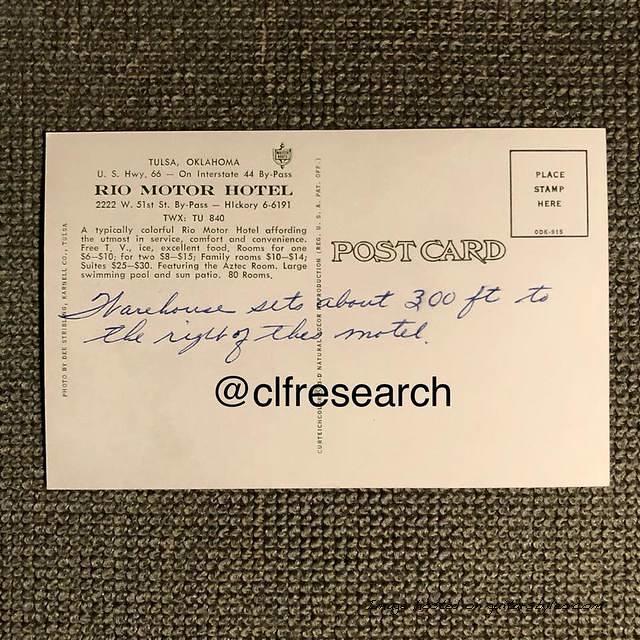 TULSA, OKLAHOMA
U. S. Hwy. 66 — On Interstate 44 By-Pass
RIO MOTOR HOTEL
2222 W. 51st St. By-Pass — HIckory 6-6191
TWX: TU 840
A typically colorful Rio Motor Hotel affording
the utmost in service, comfort and convenience.
Free T. V., ice, excellent food. Rooms for one
$6—$10; for two $8—$15; Family rooms $10—$14;
Suites $25—$30. Featuring the Aztec Room. Large
swimming pool and sun patio. 80 Rooms.
PHOTO BY DEE STRIBLING, KARNELL CO., TULSA
REPRODUCTION (REG. U. S. A. PAT. OFF.)
POST CARD
PLACE
STAMP
HERE
ODK-915
Warehouse sets about 300 ft to
the right of this motel.
@clfresearch